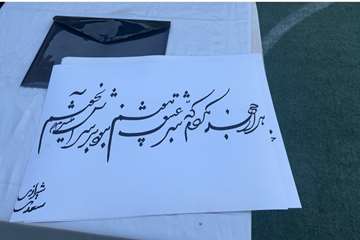 هزار جهد بکردم که سر عشق بپوشم نبود بر سر آتش میسرم که نجوشم
سعدی شیرازی